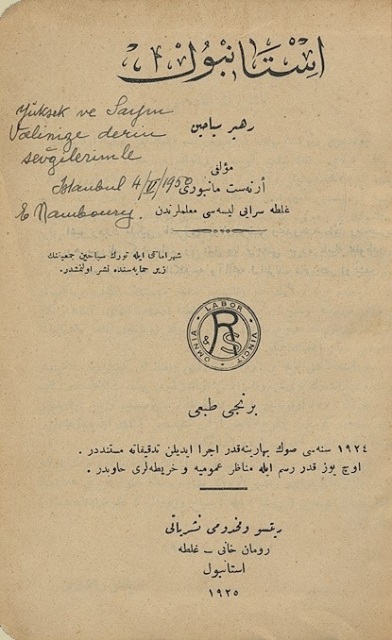 استانبول
رهبر سیاحین
Yüksek ve Sayın
Valinize derin
sevgilerimle
İstanbul 4/VI/1950
E Mamboury.
مؤلفی
أرنست مانبوری
غلطه سرایی لیسه‌سی معلملرندن
شهر امانتی ایله تورك سیاحین جمعیتنك
زیر حمایه‌سنده نشر اولنمشدر.
LABOR
VINCIT
OMNIA
R & S
برنجی طبعی
١٩٢٤ سنه‌سی صوك بهارینه‌قدر اجرا ایدیلن تدقیقاته مستنددر.
اوچ یوز قدر رسم ایله مناظر عمومیه و خریطه‌لری حاویدر.
ریتسو ومخدومی نشریاتی
رومان خانی — غلطه
استانبول
١٩٢٥